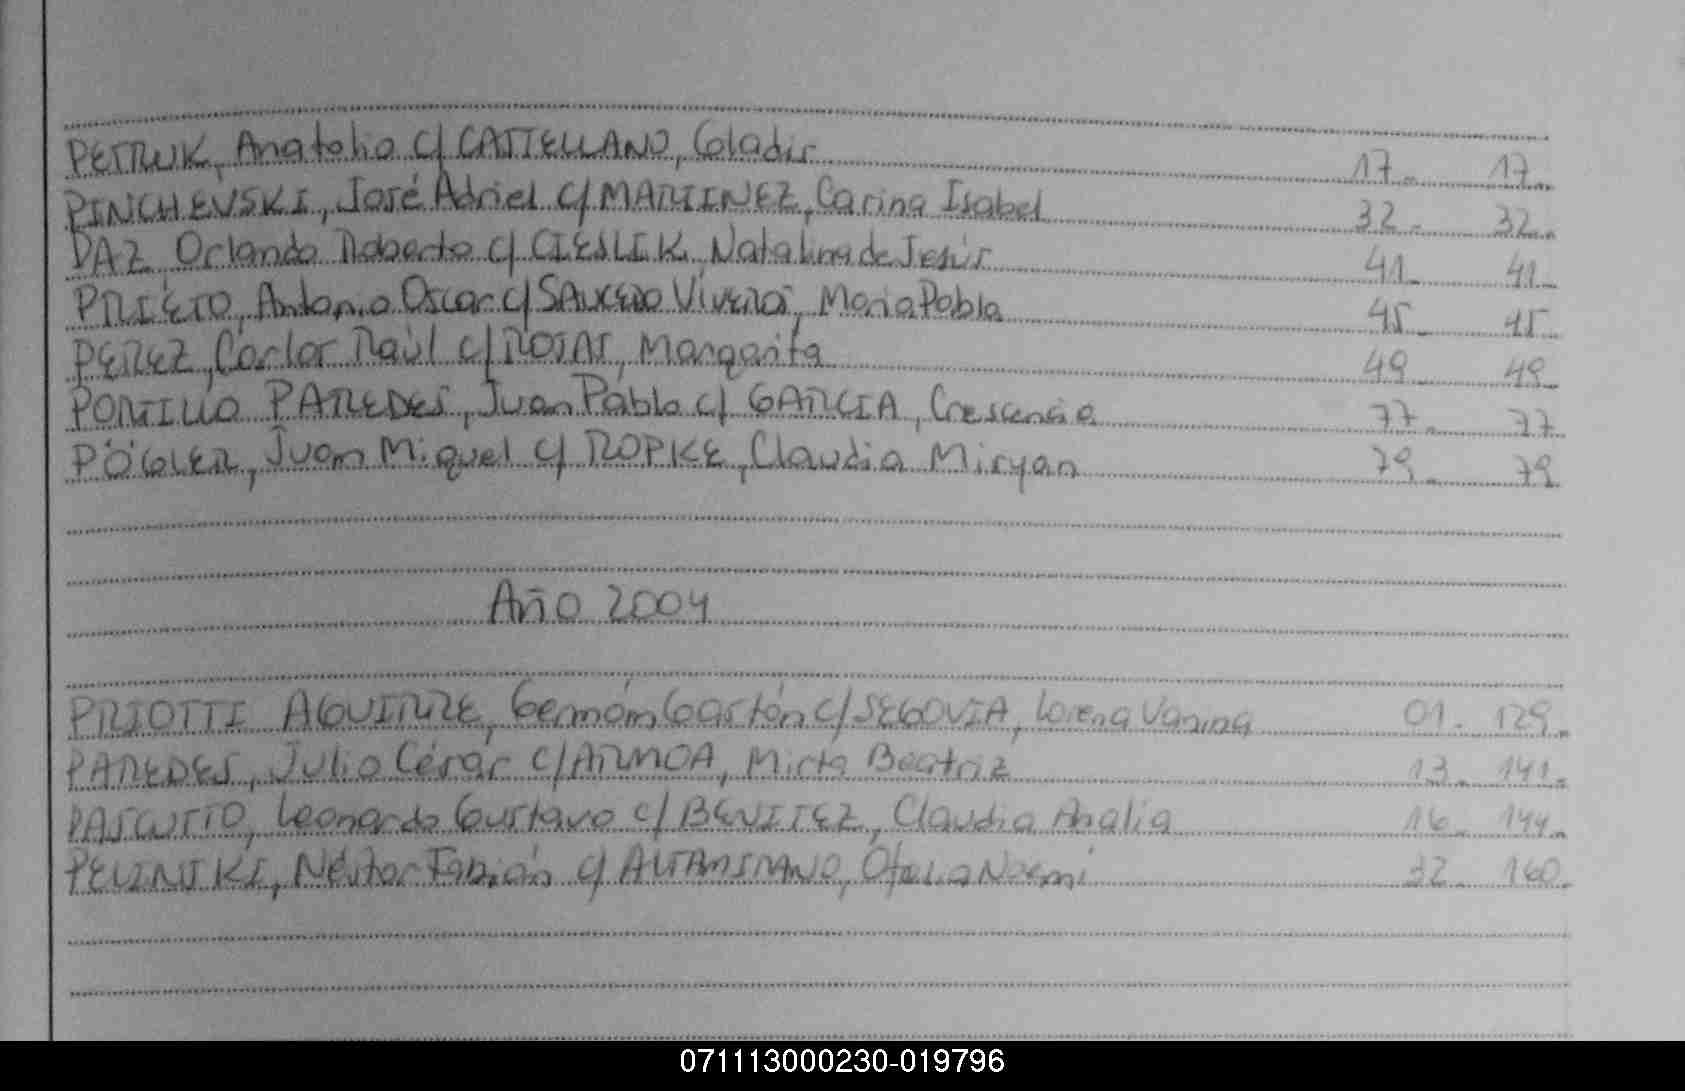 PETRUK, Anatolio c/ CASTELLANO, Gladis 17 17
PINCHEVSKI, José Adriel c/ MARTINEZ, Carina Isabel 32 32
PAZ Orlando Roberto c/ CIESLIK, Natalina de Jesús 41 41
PRIETO, Antonio Oscar c/ SALCEDO VIVEROS, María Pabla 45 45
PEREZ, Carlos Raúl c/ ROJAS, Margarita 49 49
PORTILLO PAREDES, Juan Pablo c/ GARCIA, Crescencia 77 77
PÖGLER, Juan Miguel c/ ROPKE, Claudia Miryan 79 79
Año 2004
PRIOTTI AGUIRRE, Germán Gastón c/ SEGOVIA, Lorena Vanina 01 129
PAREDES, Julio César c/ ARMOA, Mirta Beatriz 13 141
PASCUTTO, Leonardo Gustavo c/ BENITEZ, Claudia Analía 16 144
PELINSKI, Néstor Fabián c/ ALTAMIRANO, Ofelia Noemí 32 160
071113000230-019796